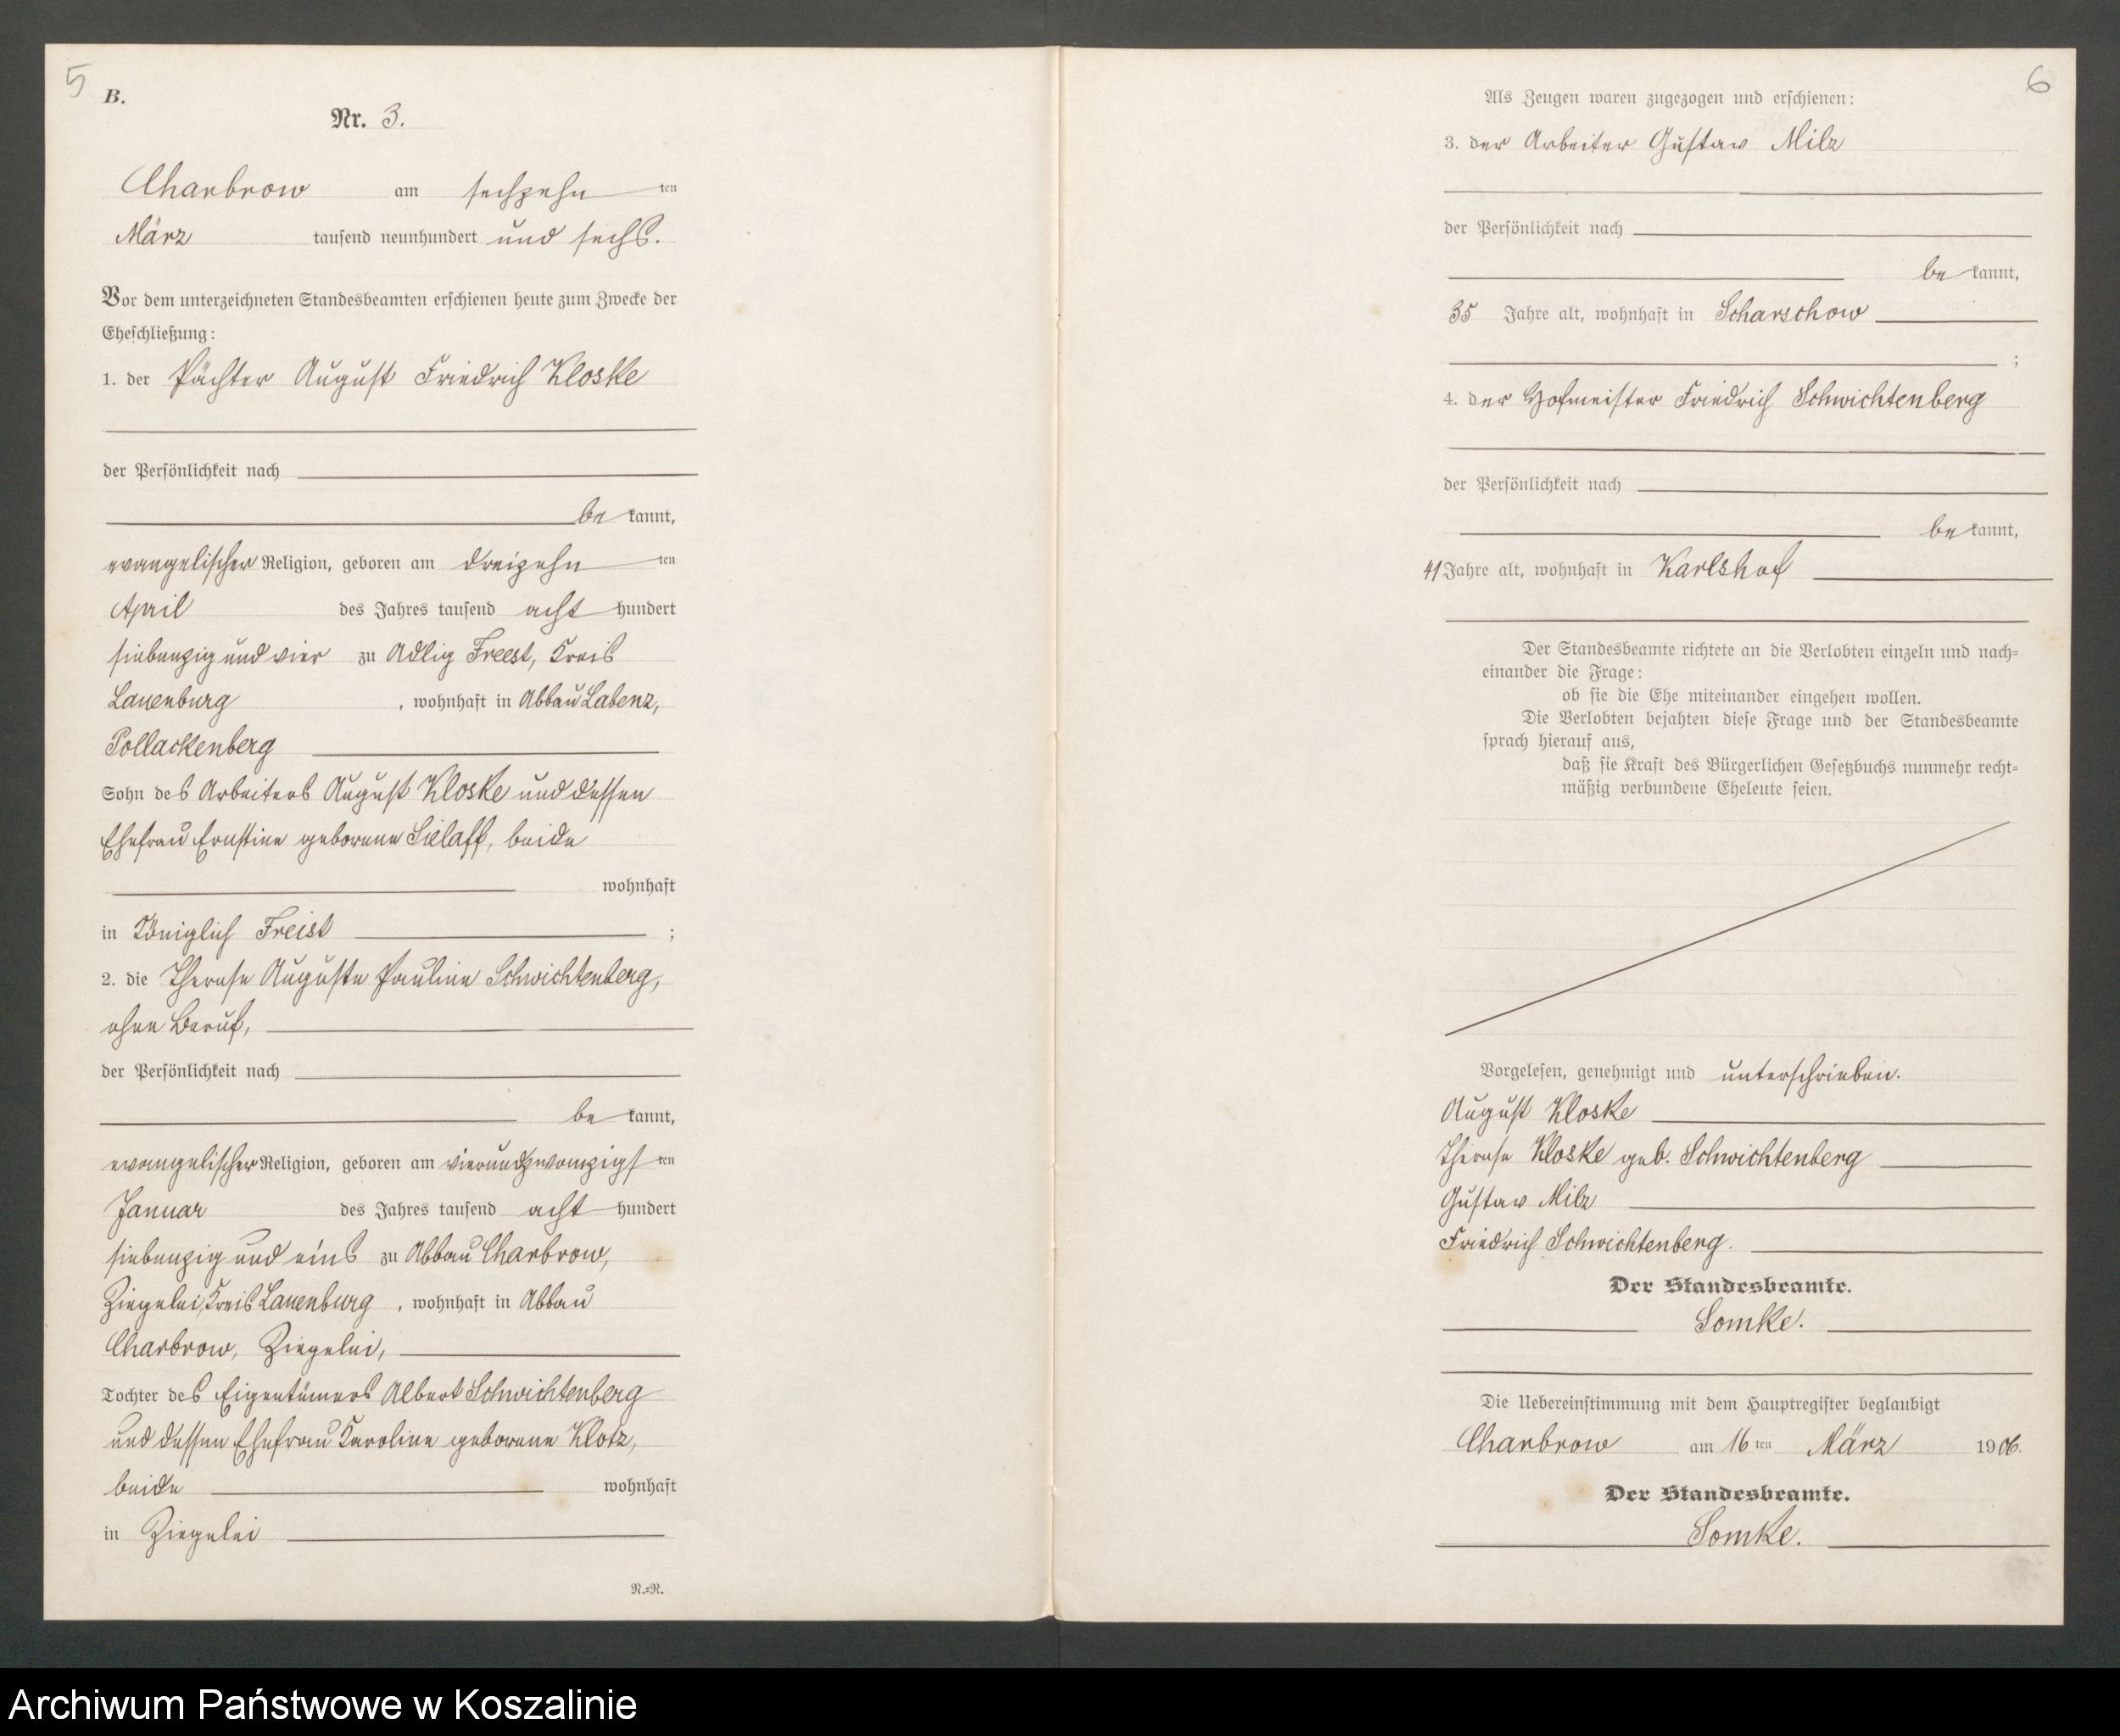 5
B.
Nr. 3.
Charbrow am sechzehn ten
März tausend neunhundert und sechs.
Vor dem unterzeichneten Standesbeamten erschienen heute zum Zwecke der
Eheschließung:
1. der Pächter August Friedrich Kloske
der Persönlichkeit nach
be kannt,
evangelischer Religion, geboren am dreizehn ten
April des Jahres tausend acht hundert
siebenzig und vier zu Adlig Freest, Kreis
Lauenburg , wohnhaft in Abbau Labenz,
Pollackenberg
Sohn des Arbeiters August Kloske und dessen
Ehefrau Ernstine geborene Sielaff, beide
wohnhaft
in Königlich Freist ;
2. die Therese Auguste Pauline Schwichtenberg,
ohne Beruf,
der Persönlichkeit nach
be kannt,
evangelischer Religion, geboren am vierundzwanzigs ten
Januar des Jahres tausend acht hundert
siebenzig und eins zu Abbau Charbrow,
Ziegelei, Kreis Lauenburg , wohnhaft in Abbau
Charbrow, Ziegelei,
Tochter des Eigentümers Albert Schwichtenberg
und dessen Ehefrau Karoline geborene Klotz,
beide wohnhaft
in Ziegelei
N.=N.
6
Als Zeugen waren zugezogen und erschienen:
3. der Arbeiter Gustav Milz
der Persönlichkeit nach
be kannt,
35 Jahre alt, wohnhaft in Scharschow
;
4. der Hofmeister Friedrich Schwichtenberg
der Persönlichkeit nach
be kannt,
41 Jahre alt, wohnhaft in Karlshof
Der Standesbeamte richtete an die Verlobten einzeln und nach=
einander die Frage:
ob sie die Ehe miteinander eingehen wollen.
Die Verlobten bejahten diese Frage und der Standesbeamte
sprach hierauf aus,
daß sie Kraft des Bürgerlichen Gesetzbuchs nunmehr recht=
mäßig verbundene Eheleute seien.
Vorgelesen, genehmigt und unterschrieben.
August Kloske
Therese Kloske geb. Schwichtenberg
Gustav Milz
Friedrich Schwichtenberg.
Der Standesbeamte.
Somke.
Die Uebereinstimmung mit dem Hauptregister beglaubigt
Charbrow am 16 ten März 1906.
Der Standesbeamte.
Somke.
Archiwum Państwowe w Koszalinie